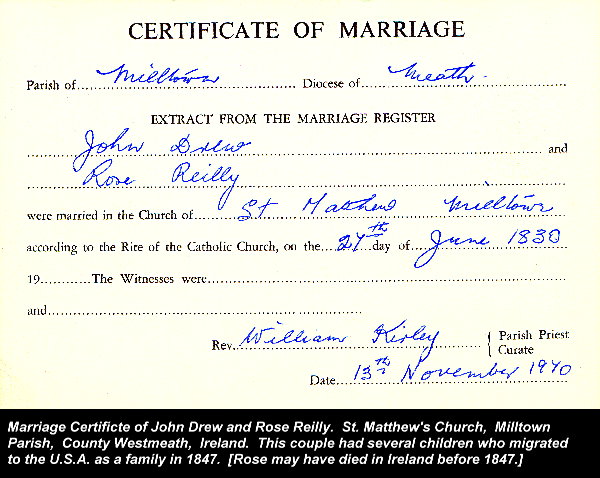 CERTIFICATE OF MARRIAGE
Parish of Milltown Diocese of Meath.
EXTRACT FROM THE MARRIAGE REGISTER
John Drew and
Rose Reilly
were married in the Church of St Matthew Milltown
according to the Rite of the Catholic Church, on the 24th day of June 1830
19 The Witnesses were
and
Rev. William Kirley { Parish Priest
Curate
Date 13th November 1970
Marriage Certificte of John Drew and Rose Reilly. St. Matthew's Church, Milltown
Parish, County Westmeath, Ireland. This couple had several children who migrated
to the U.S.A. as a family in 1847. [Rose may have died in Ireland before 1847.]